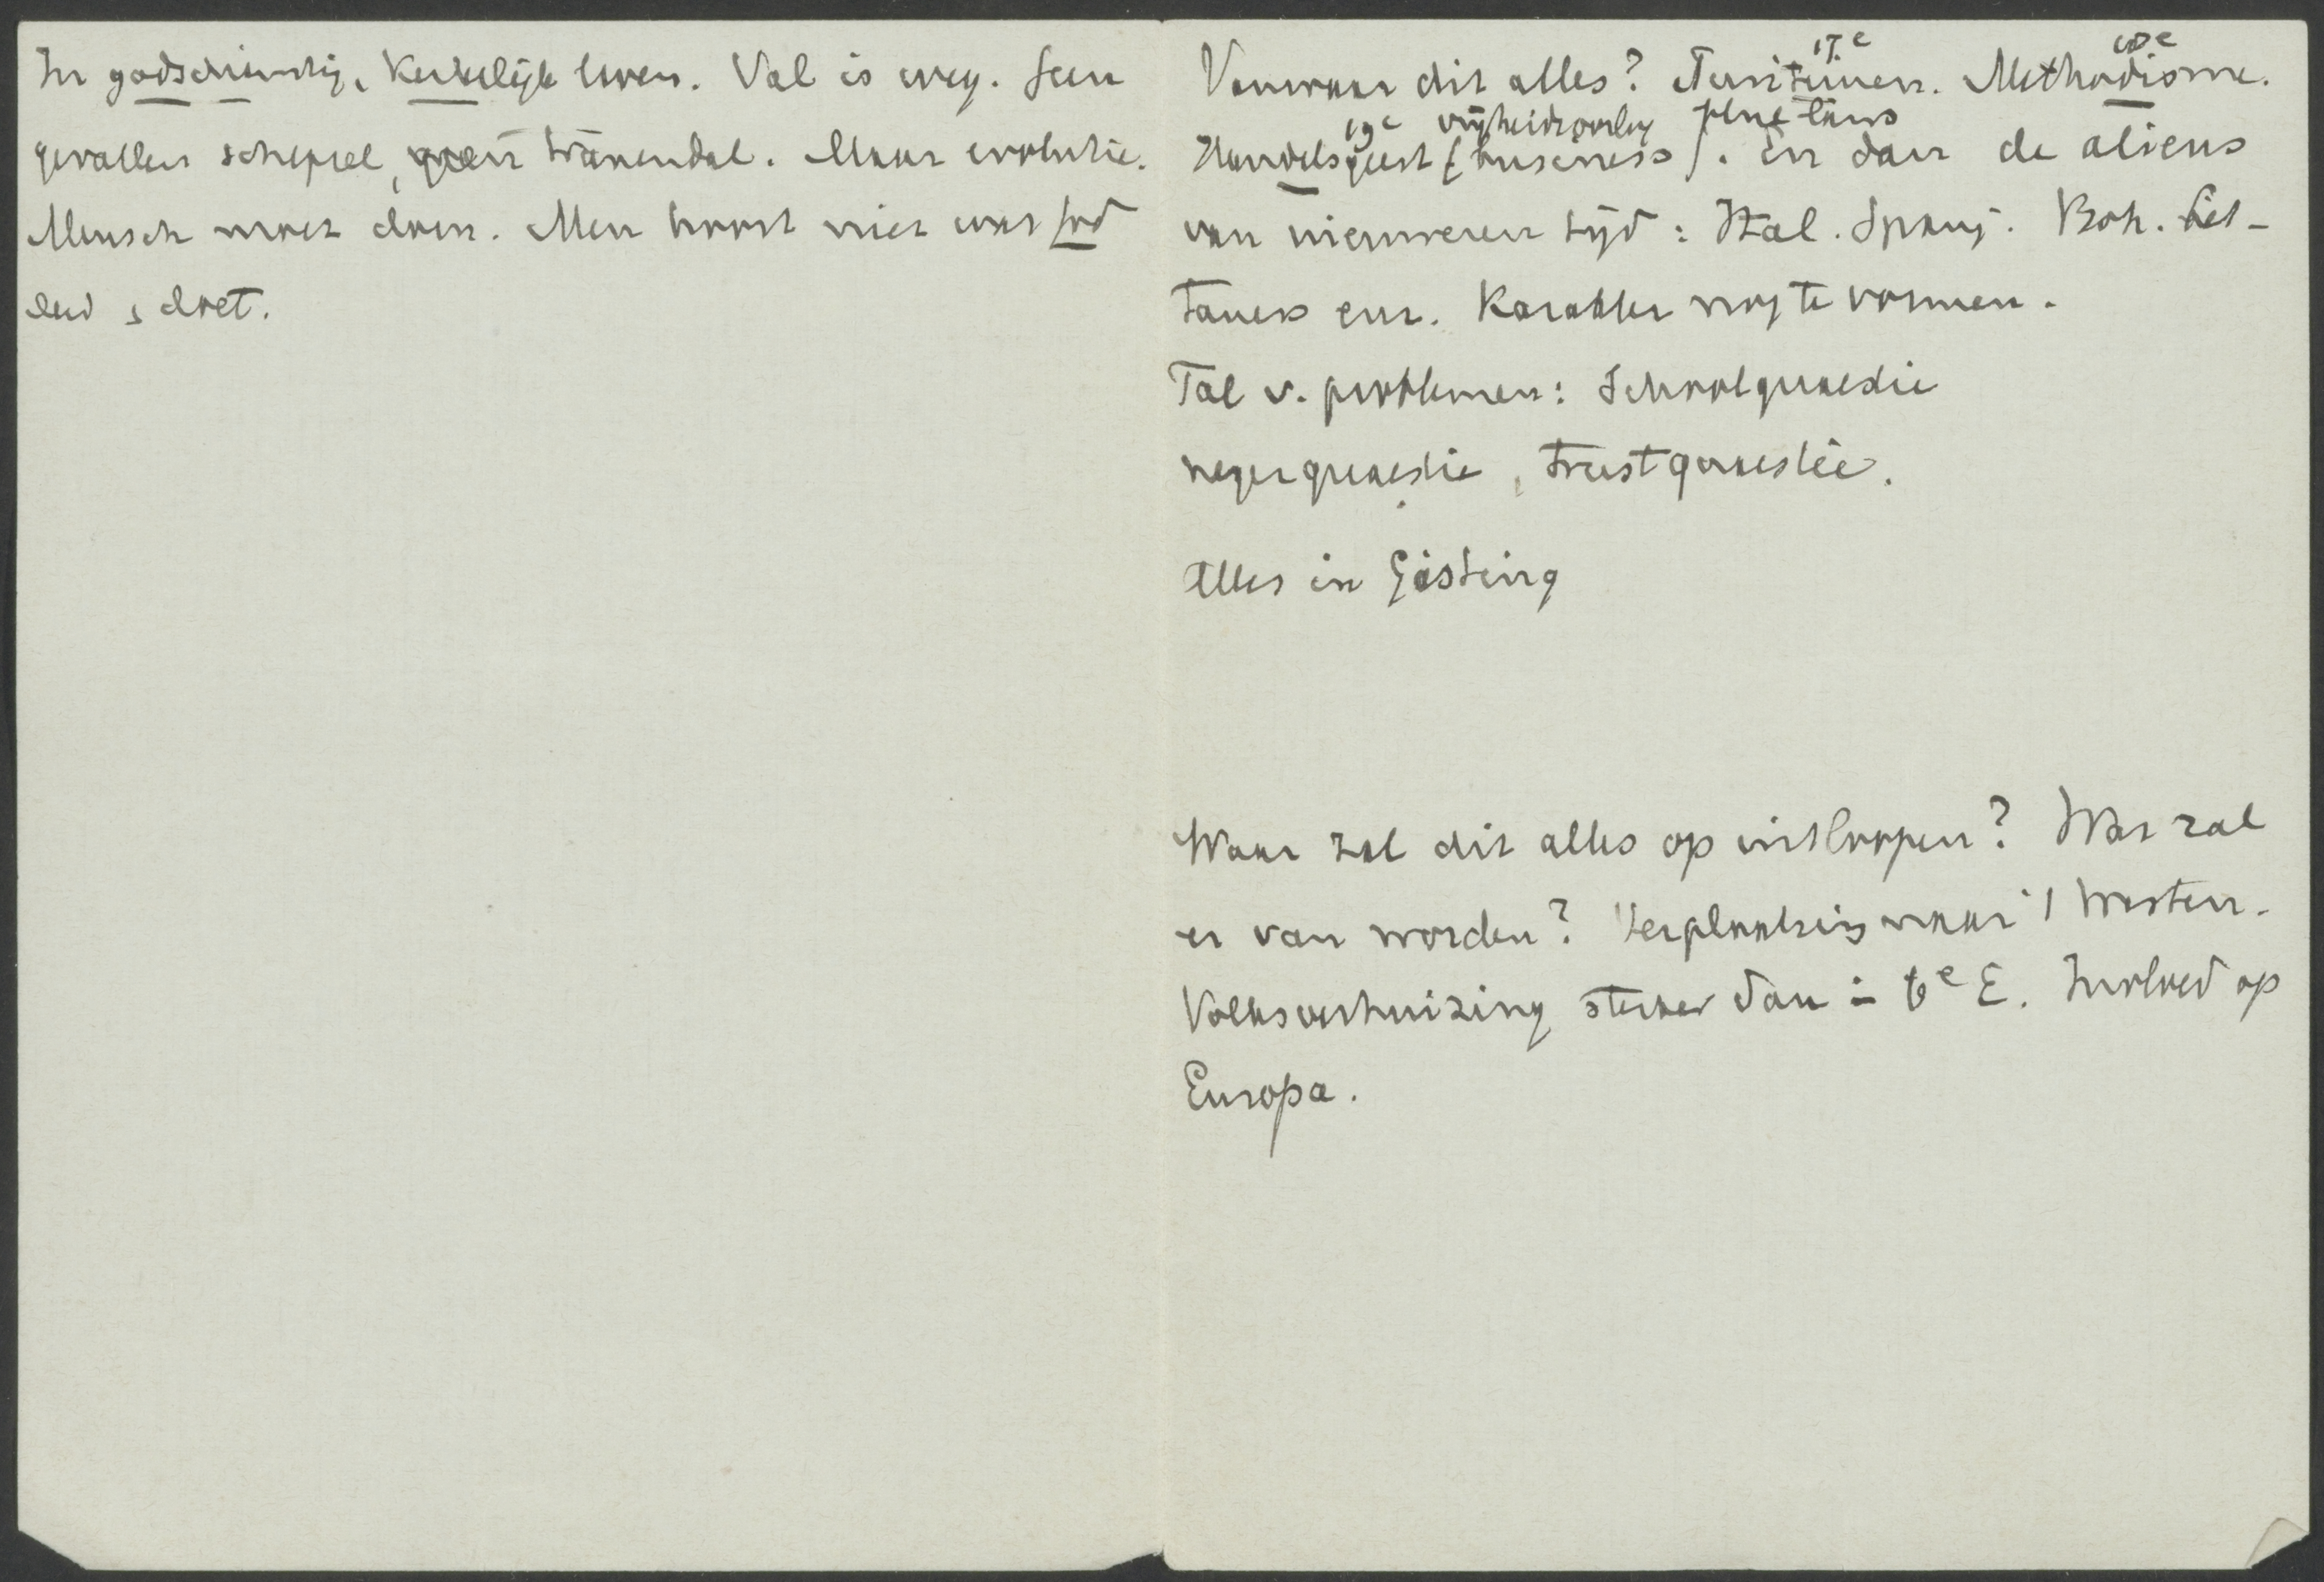 In godsdienstig, Kerkelijk leven. Val is weg. Geen
gevallen schepsel, geen tranendal. Maar evolutie.
Mensch moet doen. Men hoort niet wat God
deed & doet.
Vanwaar dit alles? Puriteinen. 17e Methodisme. 18e
19e vrijheidsoorlog
Handelsgeest (business). En dan de aliens
van nieuweren tijd: Ital. Spanj. Boh.
enz. Karakter nog te vormen.
Tal v. problemen: Schoolquaestie
negerquaestie, trustquaestie.
Alles in Gisting
Waar zal dit alles op uitloopen? Wat zal
er van worden? Verplaatsing naar 't Westen.
Volksverhuizing sterker dan in 6e E. Invloed op
Europa.